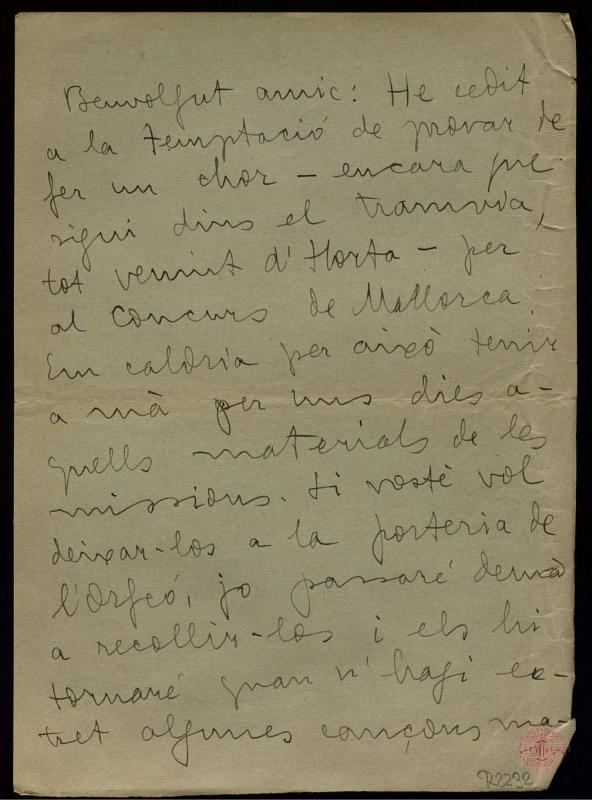 Benvolgut amic: He cedit
a la temptació de provar de
fer un chor – encara que
sigui dins el tramvia,
tot venint d'Horta – per
al Concurs de Mallorca.
Em caldria per això tenir
a mà per uns dies a-
quells materials de les
missions. Si vostè vol
deixar-los a la porteria de
l'Orfeó, jo passaré demà
a recollir-los i els hi
tornaré quan n'hagi ex-
tret algunes cançons ma-
R2232